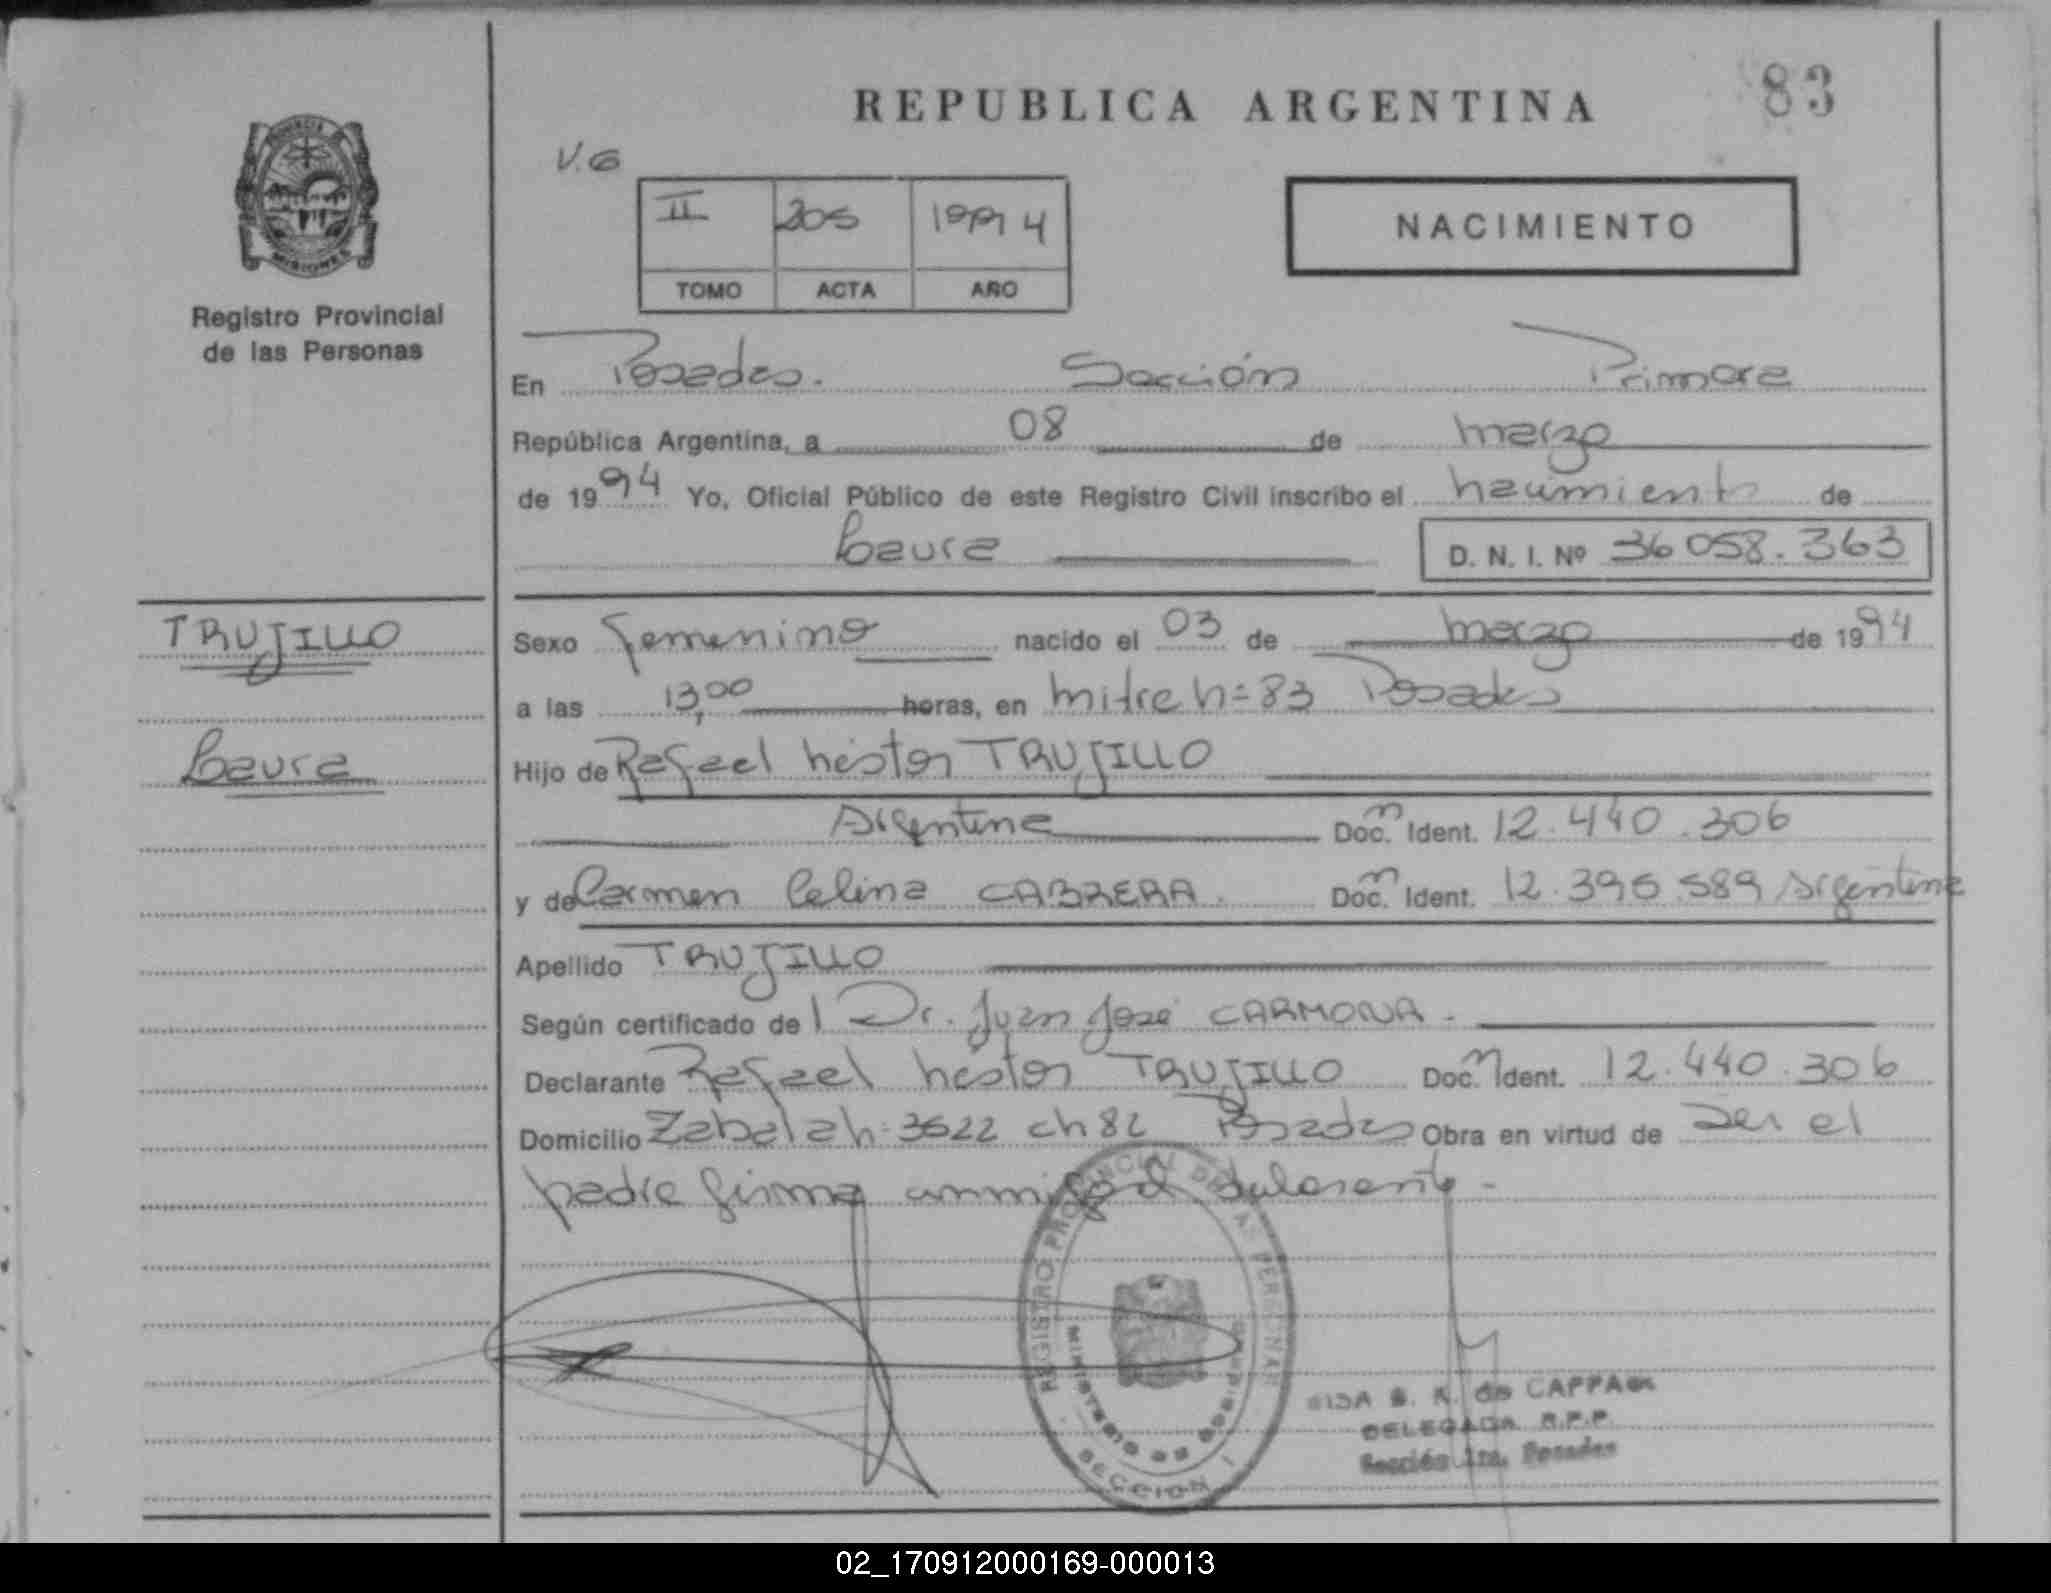 REPUBLICA ARGENTINA
83
V.G
II 205 1994
TOMO ACTA AÑO
NACIMIENTO
PROVINCIA
MISIONES
Registro Provincial
de las Personas
En Posadas. Sección Primera
República Argentina, a 08 de marzo
de 1994 Yo, Oficial Público de este Registro Civil inscribo el nacimiento de
Laura D. N. I. Nº 36058.363
TRUJILLO
Laura
Sexo femenino nacido el 03 de marzo de 1994
a las 13,00 horas, en mitre n=83 Posadas
Hijo de Rafael héctor TRUJILLO
Argentina Doc. Ident. 12.440.306
y de Carmen Celina CABRERA. Doc. Ident. 12.395.589 Argentina
Apellido TRUJILLO
Según certificado del Dr. Juan José CARMONA.
Declarante Rafael héctor TRUJILLO Doc. Ident. 12.440.306
Domicilio Zabala n=3622 ch 82 Posadas Obra en virtud de ser el
padre firma el declarante.-
REGISTRO PROVINCIAL DE LAS PERSONAS
MINISTERIO DE GOBIERNO
SECCION I
de CAPPA
DELEGADA R.P.P.
Sección 1ra. Posadas
02_170912000169-000013